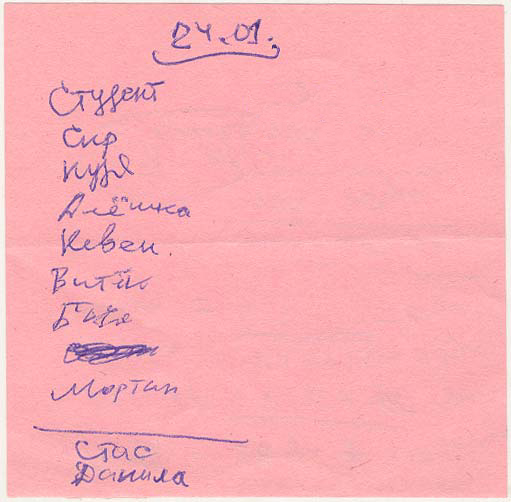 24.01.
Студент
Сир
Кузя
Алёшка
Кевен.
Витёк
Батя
Мартин
Стас
Данила